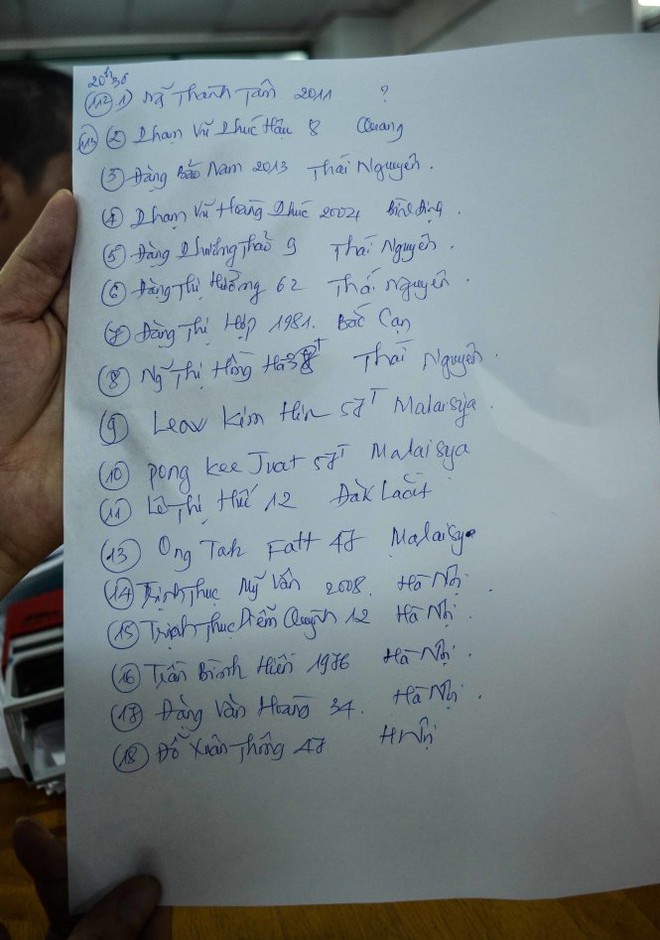 20h36
(112) 1) Ng Thành Tâm 2011 ?
(113) (2) Phạm Vũ Phúc Hậu 8 Quang
(3) Đặng Bảo Nam 2013 Thái Nguyên.
(4) Phạm Vũ Hoàng Phúc 2004 Bình định.
(5) Đặng Phương Thảo 9 Thái Nguyên.
(6) Đặng Thị Hường 62 Thái Nguyên.
(7) Đặng Thị Hợp 1981. Bắc Cạn
(8) Ng Thị Hồng Hà Thái Nguyên.
(9) Leav Kim Hin 57T Malaisya.
(10) Pong Kee Juat 57T Malaisya
(11) Lê Thị Huế 12
(13) Ong Tah Fatt 47 Malaisya
(14) Trịnh Thục Mỹ Vân 2008. Hà Nội.
(15) Trịnh Thục Diễm Quỳnh 12 Hà Nội.
(16) Trần Bình Hiến 1976 Hà Nội.
(17) Đặng Văn Hoàng 34. Hà Nội.
(18) Đỗ Xuân Thông 47 HNội